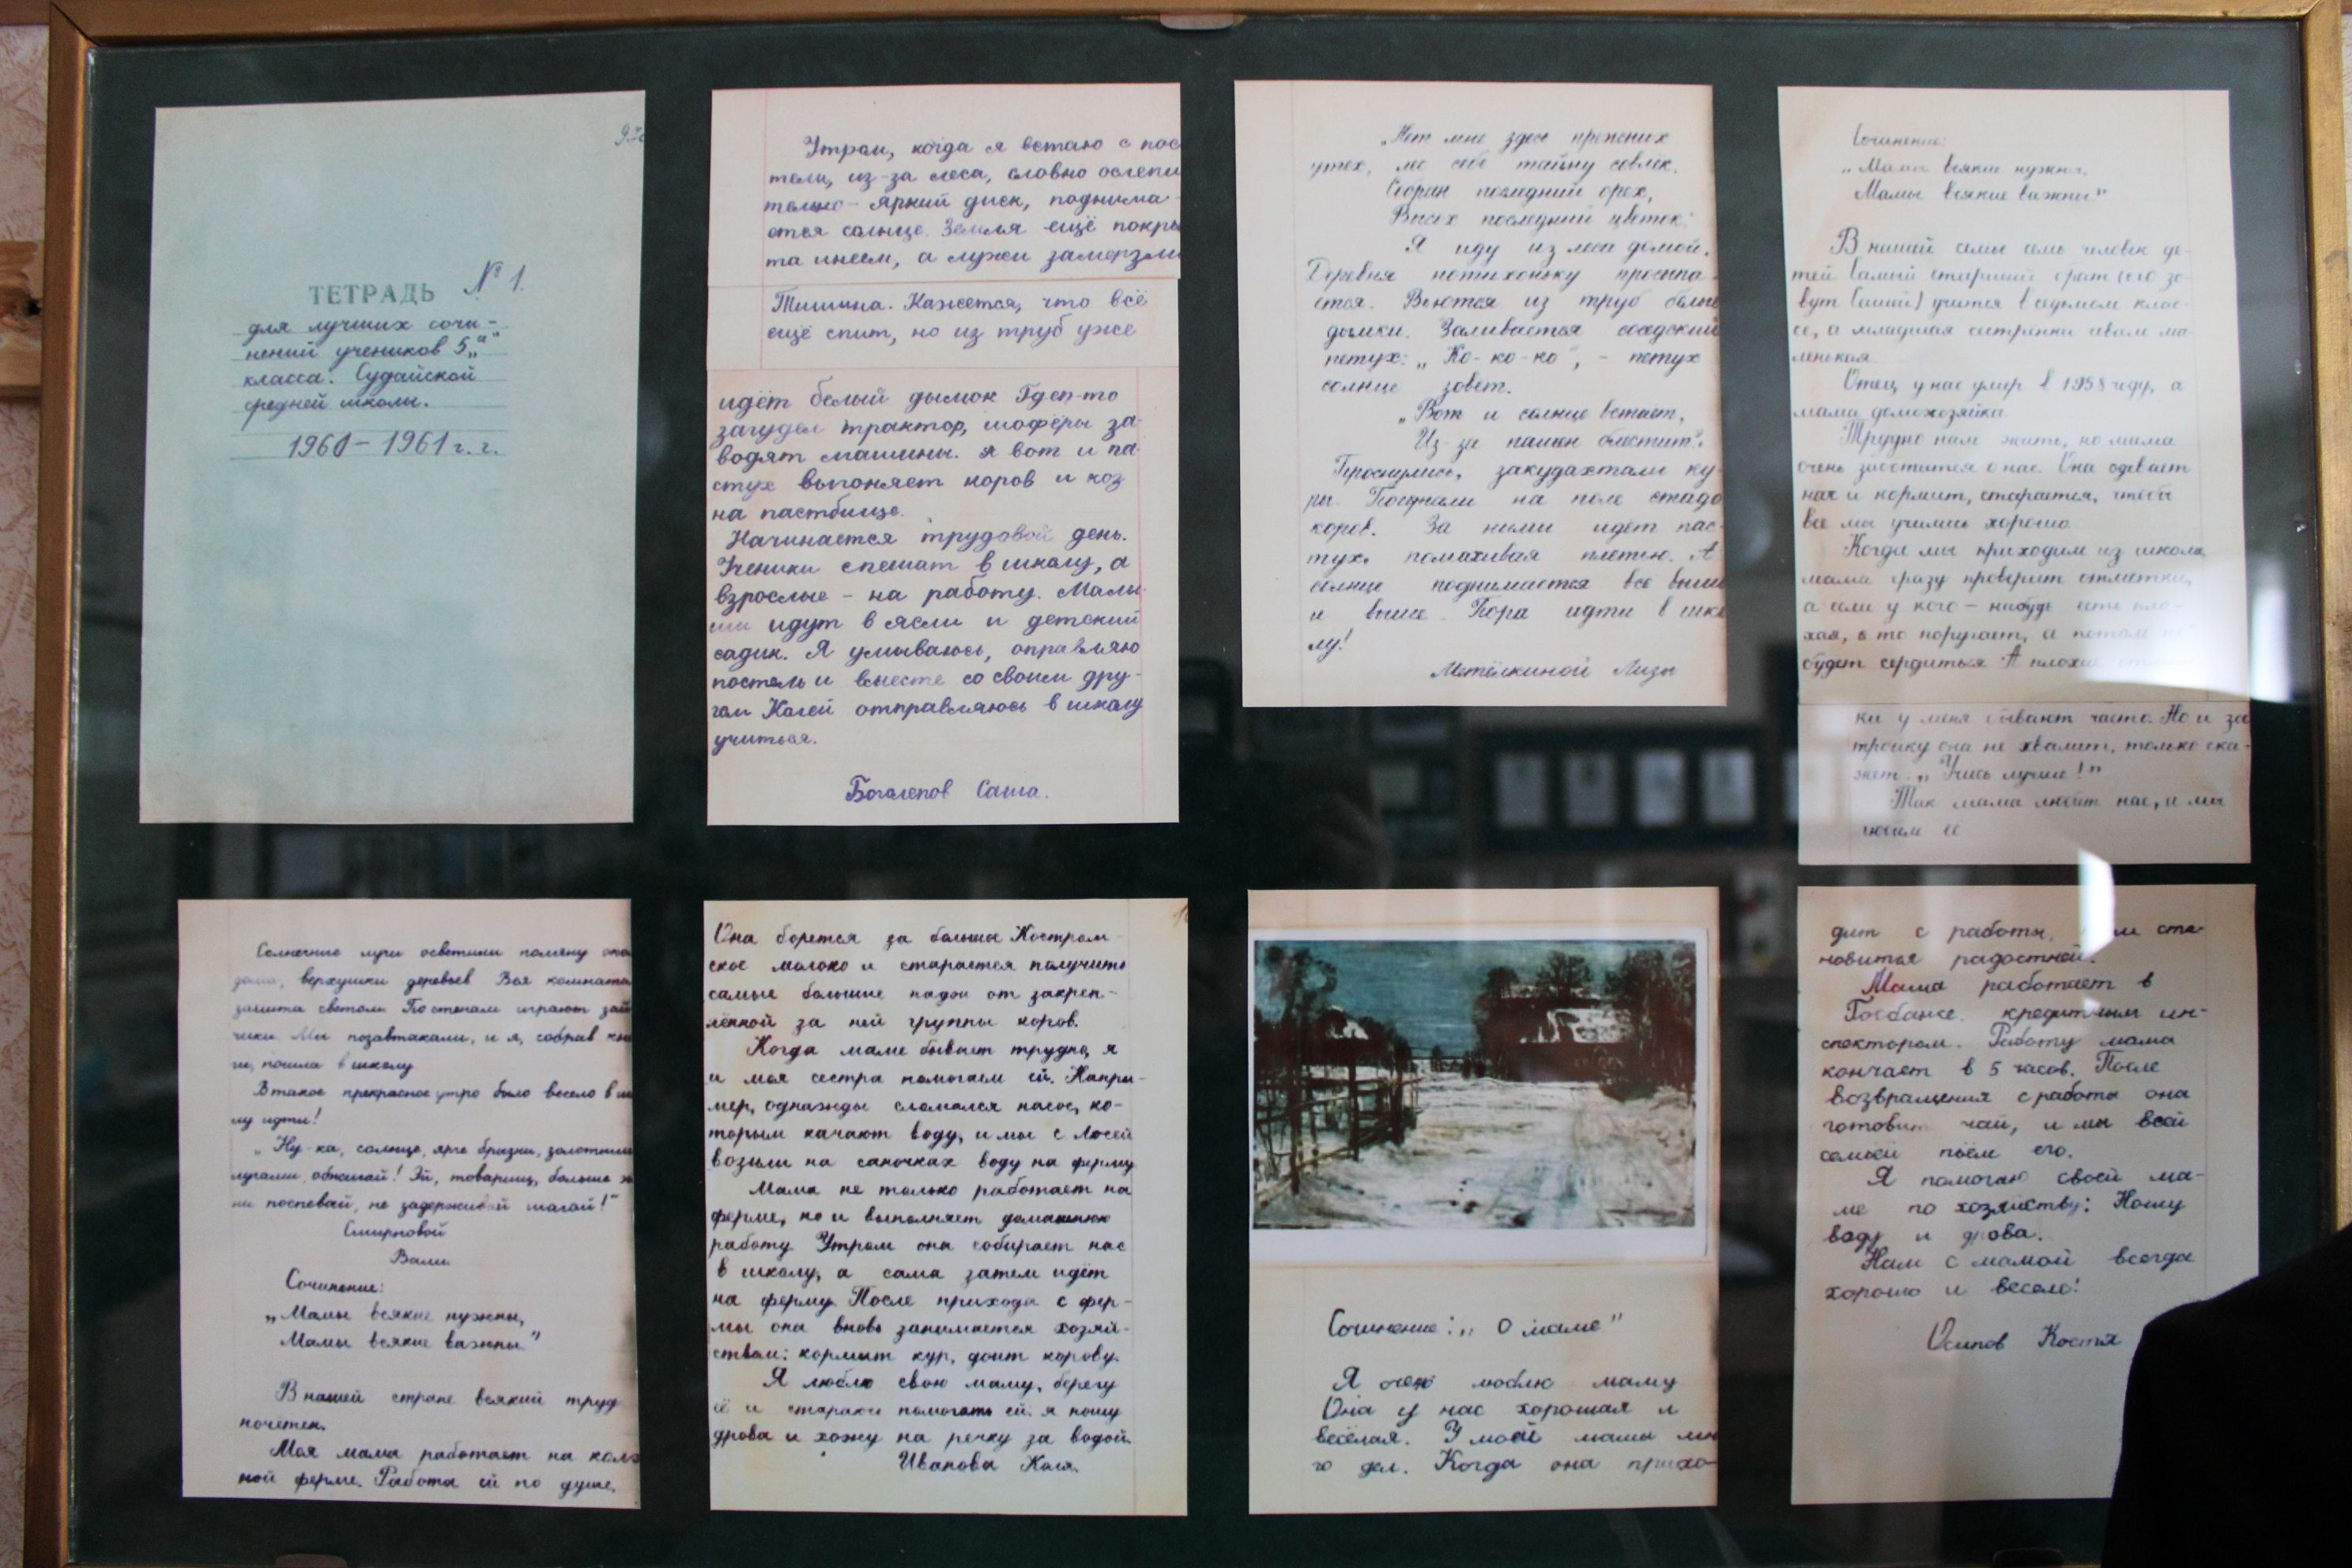 ТЕТРАДЬ № 1.
для лучших сочи-
нений учеников 5 „а"
класса. Судайской
средней школы.
1960-1961 г. г.
Утром, когда я встаю с пос
тели, из-за леса, словно ослепи
тельно- яркий диск, поднима-
ется солнце. Земля ещё покры
та инеем, а лужи замерзли
Тишина. Кажется, что всё
ещё спит, но из труб уже
идёт белый дымок Где-то
загудел трактор, шофёры за-
водят машины. А вот и па-
стух выгоняет коров и коз
на пастбище.
Начинается трудовой день.
Ученики спешат в школу, а
взрослые - на работу. Малы-
ши идут в ясли и детский
садик. Я умываюсь, оправляю
постель и вместе со своим дру-
гом Колей отправляюсь в школу
учиться.
Боголепов Саша.
„Нет мне здесь прежних
утех,
Собран последний орех,
Высох последний цветок."
Я иду из леса домой.
Деревня потихоньку просыпа-
ется. Вьются из труб белые
дымки. Заливается соседский
петух: „Ко-ко-ко", - петух
солнце зовет.
„Вот и солнце встает,
Из-за пашен блестит".
Проснулись, закудахтали ку-
ры. Погнали на поле стадо
коров. За ними идет пас-
тух, помахивая плетью. А
солнце поднимается все выше
и выше. Пора идти в шко
лу!
Метёлкиной Лизы
Сочинение:
„Мамы всякие нужны,
Мамы всякие важны."
В нашей семье семь человек де-
тей Самый старший брат (его зо-
вут Сашей) учится в седьмом клас-
се, а младшая сестренка совсем ма-
ленькая.
Отец у нас умер в 1958 году, а
мама домохозяйка
Трудно нам жить, но мама
очень заботится о нас. Она одевает
нас и кормит, старается, чтобы
все мы учились хорошо.
Когда мы приходим из школы,
мама сразу проверит отметки,
а если у кого-нибудь есть пло-
хая, то поругает, а потом не
будет сердиться А плохие
ки у меня бывают часто. Но и за
тройку она не хвалит, только ска-
жет: „Учись лучше!"
Так мама любит нас, и мы
любим её
Солнечные лучи осветили поляну око
дома, верхушки деревьев Вся комната
залита светом По стенам играют зай
чики. Мы позавтракали, и я, собрав кни
ги, пошла в школу
В такое прекрасное утро было весело в шк
лу идти!
„Ну-ка, солнце, ярче брызни, золотыми
лучами обжигай! Эй, товарищ, больше жи
ни поспевай, не задерживай шагай!"
Смирновой
Вали.
Сочинение:
„Мамы всякие нужны,
Мамы всякие важны."
В нашей стране всякий труд
почетен.
Моя мама работает на колх
ной ферме. Работа ей по душе.
Она борется за больше Костром-
ское молоко и старается получить
самые большие надои от закреп-
лённой за ней группы коров.
Когда маме бывает трудно, я
и моя сестра помогаем ей. Напри-
мер, однажды сломался насос, ко-
торым качают воду, и мы с Люсей
возили на саночках воду на ферму
Мама не только работает на
ферме, но и выполняет домашнюю
работу. Утром она собирает нас
в школу, а сама затем идёт
на ферму. После прихода с фер-
мы она вновь занимается хозяй-
ством: кормит кур, доит корову.
Я люблю свою маму, берегу
её и стараюсь помогать ей: я ношу
дрова и хожу на речку за водой.
Иванова
Сочинение: „О маме"
Я очень люблю маму
Она у нас хорошая и
весёлая. У моей мамы мно
го дел. Когда она прихо-
дит с работы, ста-
новится радостней.
Мама работает в
Госбанке кредитным ин-
спектором. Работу мама
кончает в 5 часов. После
возвращения с работы она
готовит чай, и мы всей
семьёй пьём его.
Я помогаю своей ма-
ме по хозяйству: Ношу
воду и дрова.
Нам с мамой всегда
хорошо и весело!
Осипов Костя